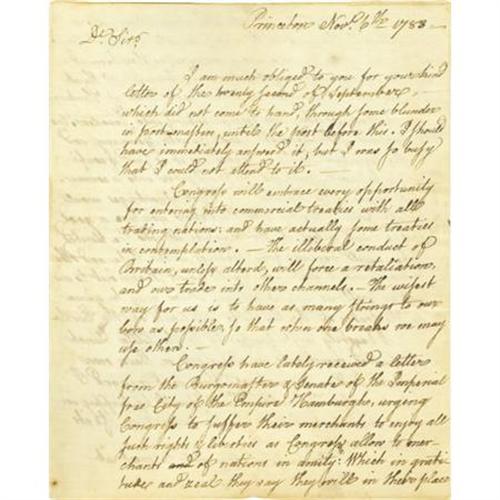 Princeton Novr. 6th. 1783 —
Dr. Sir,
I am much obliged to you for your kind
letter of the twenty second of September,
which did not come to hand, through some blunder
in post-masters, until the post before this. I should
have immediately answerd it, but I was so bussy
that I could not attend to it. —
Congress will embrace every opportunity
for entering into commercial treaties with all
trading nations: and have actually some treaties
in contemplation. — The illiberal conduct of
Britain, unless alterd, will force a retaliation,
and our trade into other channels. — The wisest
way for us is to have as many strings to our
bow as possible, so that when one breaks we may
use others. —
Congress have lately received a letter
from the Burgomasters & Senate of the Imperial
free City of the Empire Hamburgh, urgeing
Congress to suffer their merchants to enjoy all
such rights & liberties as Congress allow to mer-
chants of nations in amity: Which in grati-
tude and zeal they say they will in their place